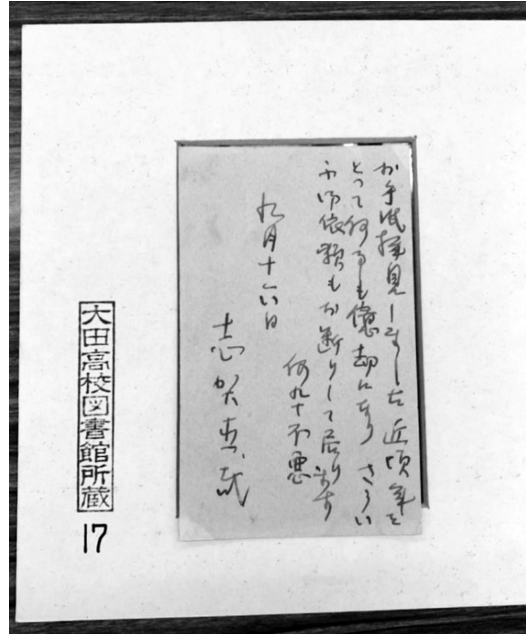 お手紙拝見しました 近頃年を
とって何事も億劫になり さうい
ふ御依頼もお断りして居ります
何卒不悪
九月十六日
志賀直哉
大田高校図書館所蔵
17